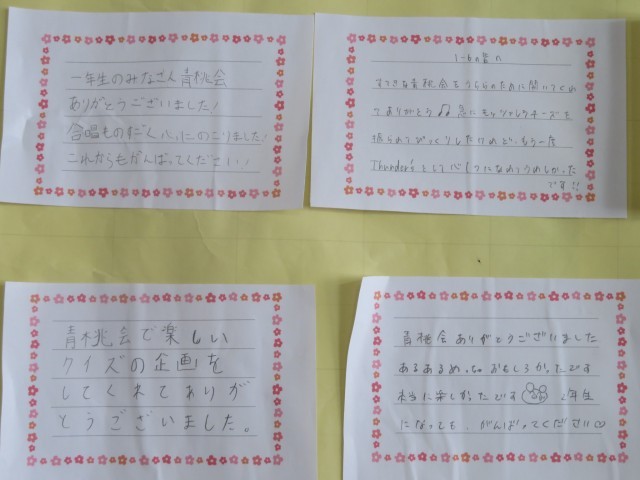 一年生のみなさん青桃会
ありがとうございました!
合唱ものすごく心にのこりました!
これからもがんばってください!
1-6の皆へ
すてきな青桃会をうちらのために開いてくれ
てありがとう♫急にモッツァレラチーズを
振られてびっくりしたけど、もう一度
Thunder'sとして心1つになれてうれしかった
です!!
青桃会で楽しい
クイズの企画を
してくれてありが
とうございました。
青桃会ありがとうございました
あるあるめっちゃおもしろかったです
本当に楽しかったです 2年生
になっても、がんばってください♡